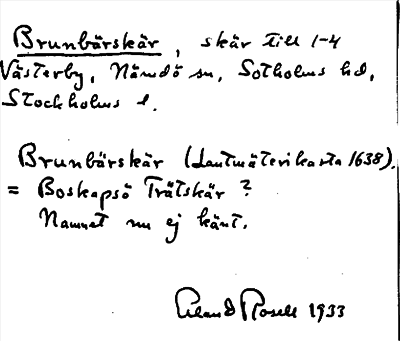 Brunbärskär, skär till 1-4
Västerby, Nämdö sn, Sotholms hd,
Stockholms l.
Brunbärskär (Lantmäterikarta 1638).
= Boskapsö Trätskär ?
Namnet nu ej känt.
Rosell 1933